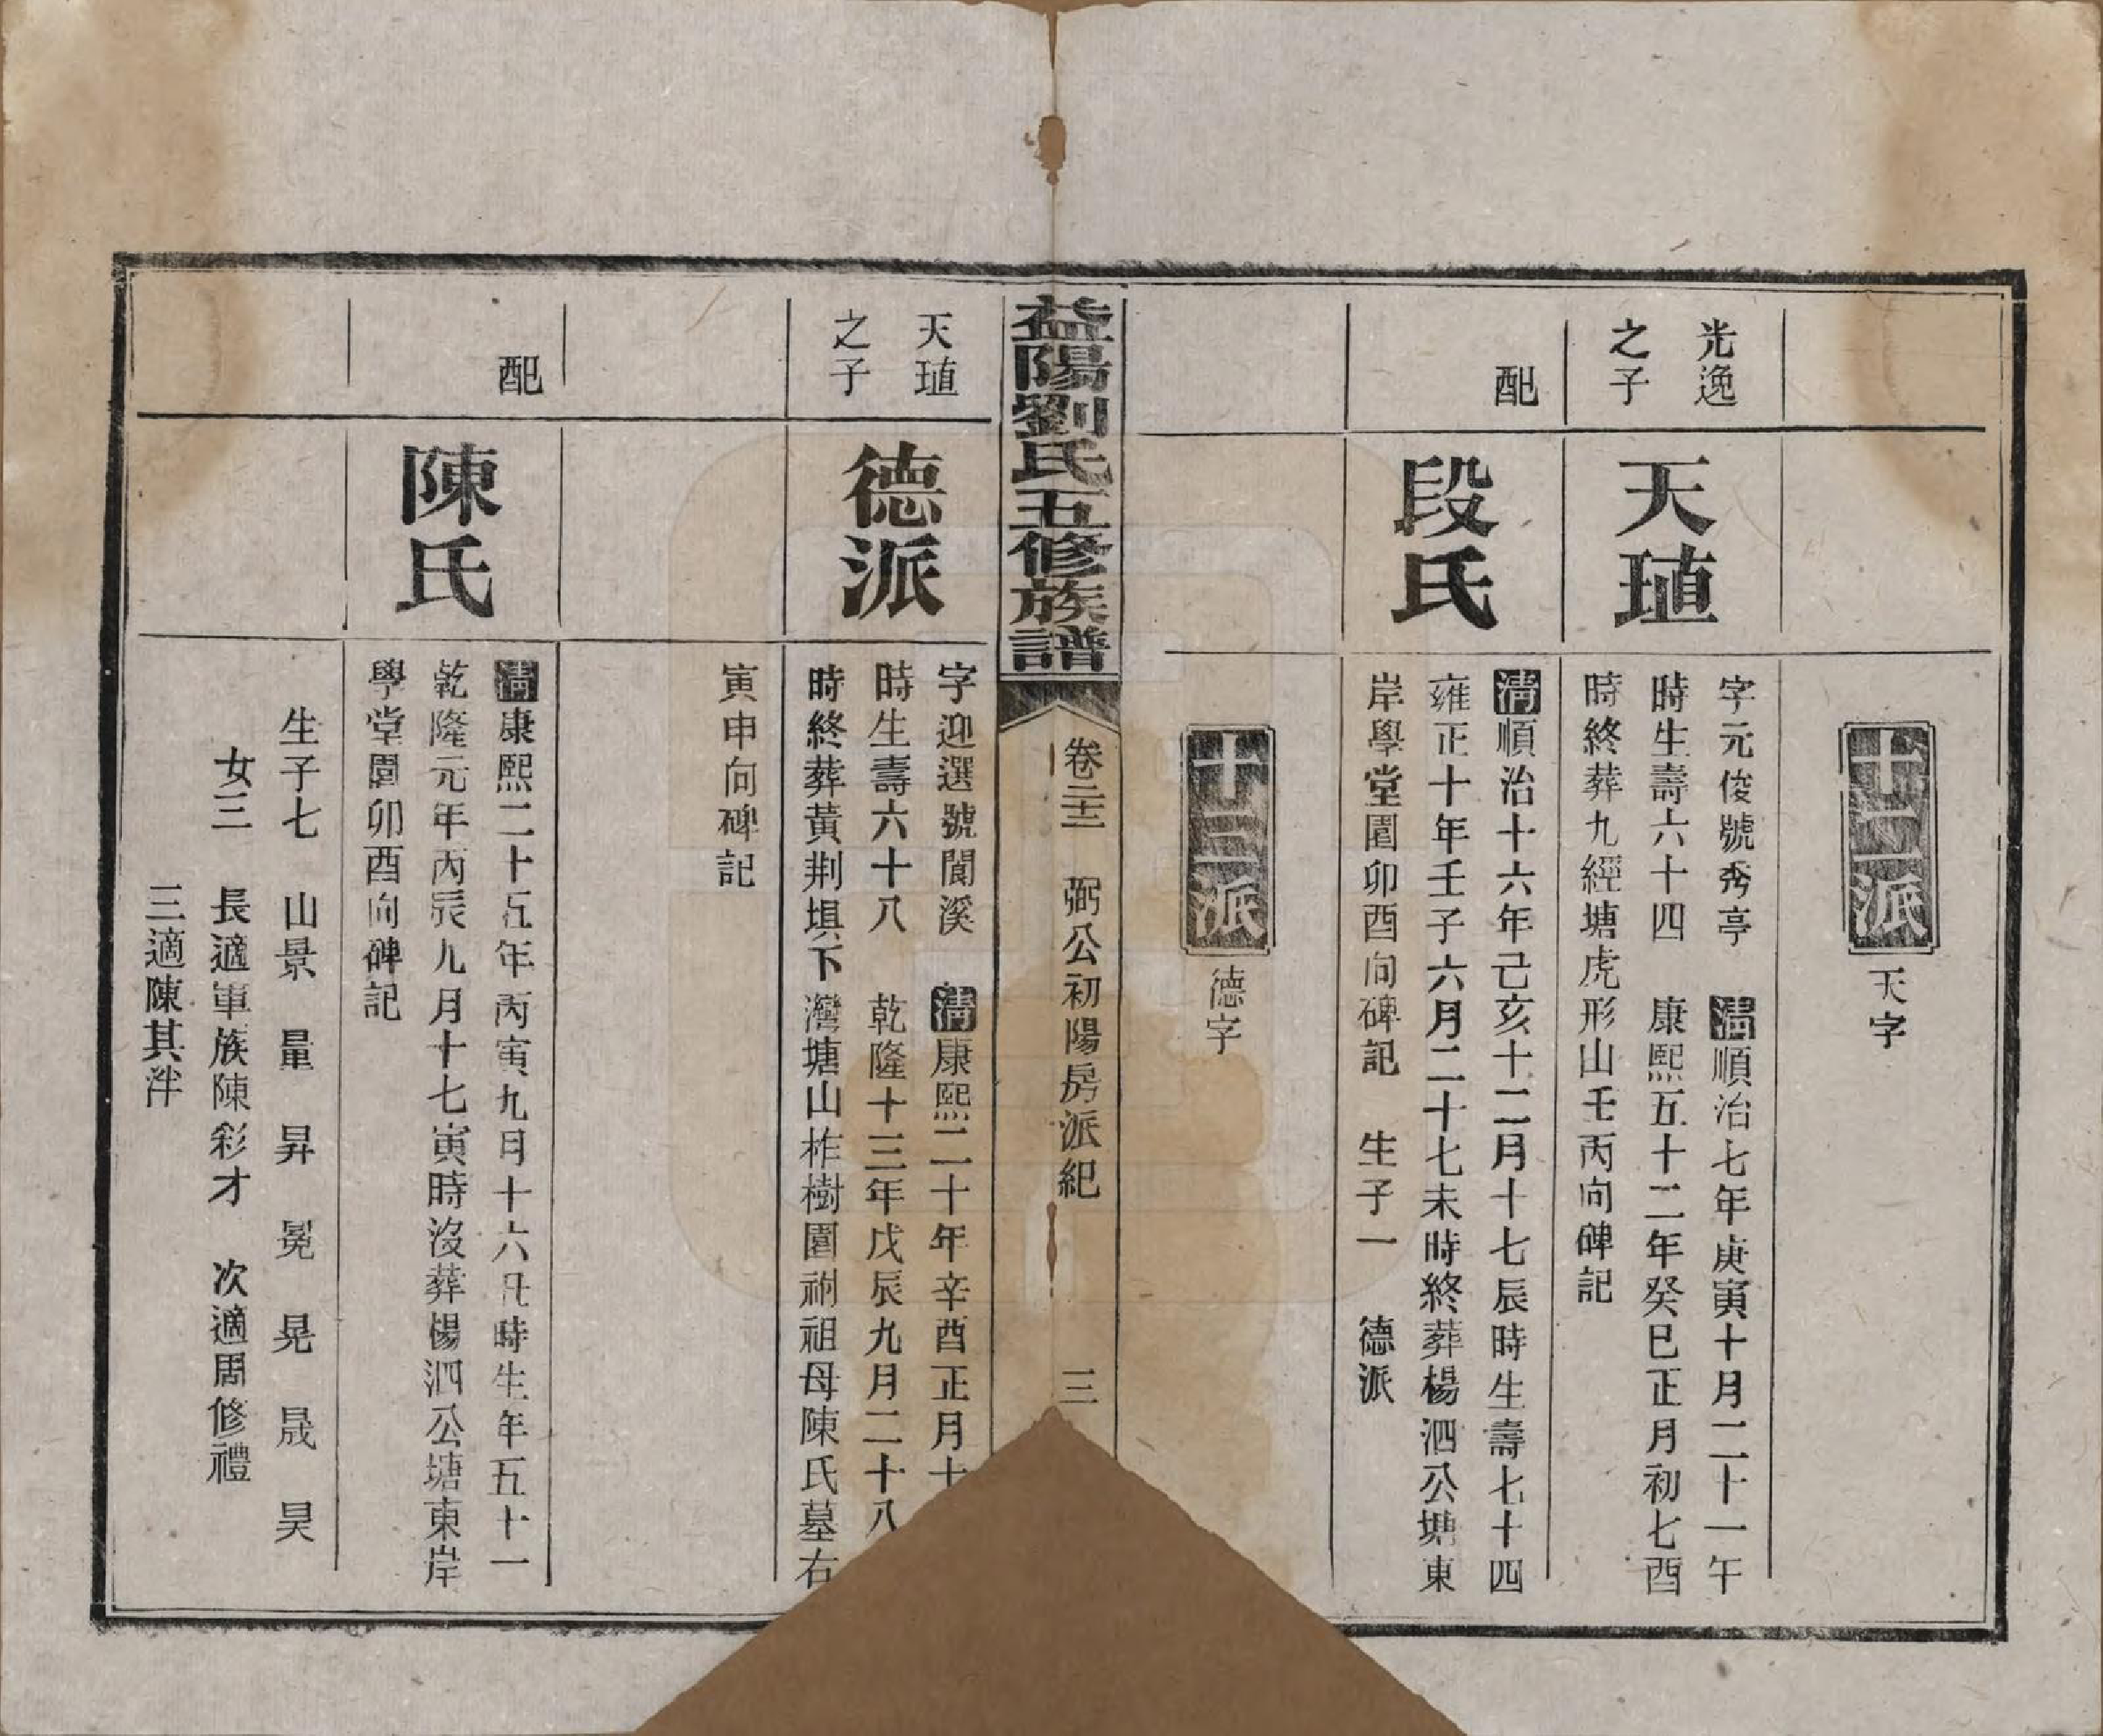 十二派
天字
光逸
之子
天埴
字元俊號秀亭 清順治七年庚寅十月二十一午
時生壽六十四 康熙五十二年癸巳正月初七酉
時終葬九經塘虎形山壬丙向碑記
配
段氏
清順治十六年己亥十二月十七辰時生壽七十四
雍正十年壬子六月二十七未時終葬楊泗公塘東
岸學堂園卯酉向碑記 生子一 德派
十三派
德字
益陽劉氏五修族譜
卷二十三 弼公初陽房派紀 三
天埴
之子
德派
字迎選號閬溪 清康熙二十年辛酉正月十
時生壽六十八 乾隆十三年戊辰九月二十八
時終葬黃荆塤下灣塘山柞樹園祔祖母陳氏墓右
寅申向碑記
配
陳氏
清康熙二十五年丙寅九月十六丑時生年五十一
乾隆元年丙辰九月十七寅時沒葬楊泗公塘東岸
學堂園卯酉向碑記
生子七 山景 量 昇 冕 晃 晟 昊
女三 長適軍族陳彩才 次適周修禮
三適陳其泮